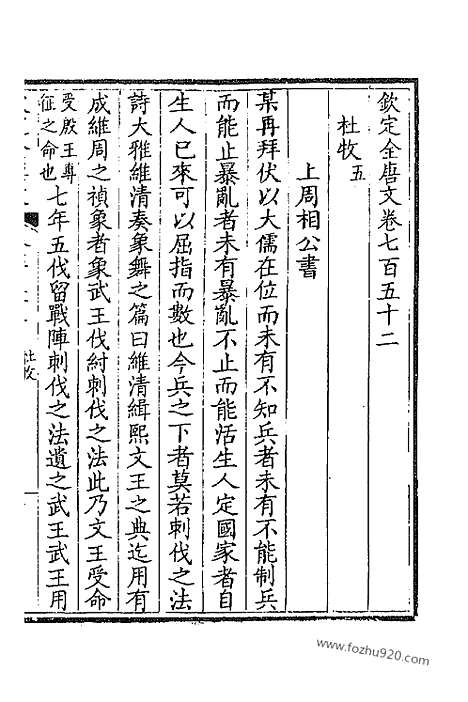 欽定全唐文卷七百五十二
杜牧五
上周相公書
某再拜伏以大儒在位而未有不知兵者未有不能制兵
而能止暴亂者未有暴亂不止而能活生人定國家者自
生人已來可以屈指而數也今兵之下者莫若刺伐之法
詩大雅維清奏象舞之篇曰維清緝熙文王之典迄用有
成維周之禎象者象武王伐紂刺伐之法此乃文王受命
受殷王專
征之命也
七年五伐留戰陣刺伐之法遺之武王武王用
杜牧
www.fozhu920.com